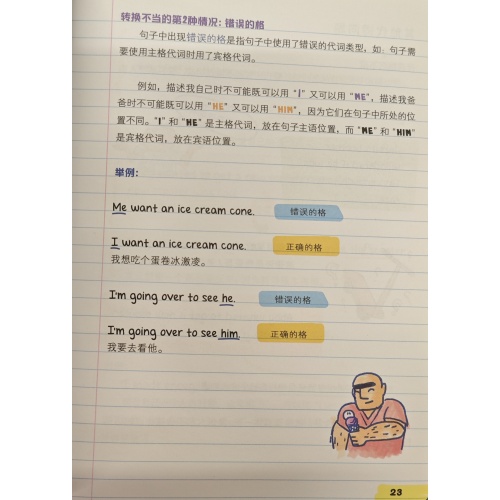 转换不当的第2种情况：错误的格
句子中出现错误的格是指句子中使用了错误的代词类型，如：句子需
要使用主格代词时用了宾格代词。
例如，描述我自己时不可能既可以用“I”又可以用“ME”，描述我爸
爸时不可能既可以用“HE”又可以用“HIM”，因为它们在句子中所处的位
置不同。“I”和“HE”是主格代词，放在句子主语位置，而“ME”和“HIM”
是宾格代词，放在宾语位置。
举例：
Me want an ice cream cone. 错误的格
I want an ice cream cone. 正确的格
我想吃个蛋卷冰激凌。
I'm going over to see he. 错误的格
I'm going over to see him. 正确的格
我要去看他。
23